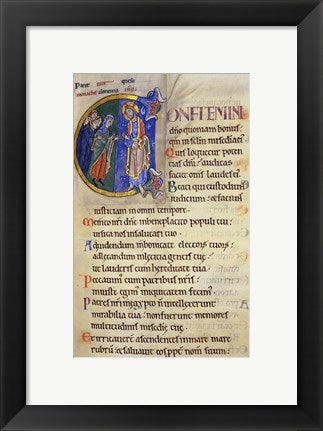 Parce tuis queso
monachis clementia ihu
CONFITEMINI
dño quoniam bonus:
qm̄ in sc̄lm miseðiaei᾽
Quis loquetur poten
tias dñi: auditas
faciet om̄s laudes ei᾽
Beati qui custodiunt
iudicium: & faciunt
iusticiam in omni tempore.
Memento nr̄i dñe inbeneplacito populi tui:
uisita nos insalutari tuo.
Aduidendum inbonitate electorū tuorū:
adletandum inleticia gentis tue:
ut lauderis cum hereditate tua.
Peccauim᾽ cum patribus nr̄is:
iniuste egim᾽ iniquitatem fecim᾽.
Patres nr̄i in egypto n̄ intellexerunt
mirabilia tua: non fuerunt memores
multitudinis miseðie tue.
Et irritauerunt ascendentes inmare mare
rubrū: & saluauit eos ꝓpt̄ nomen suum: